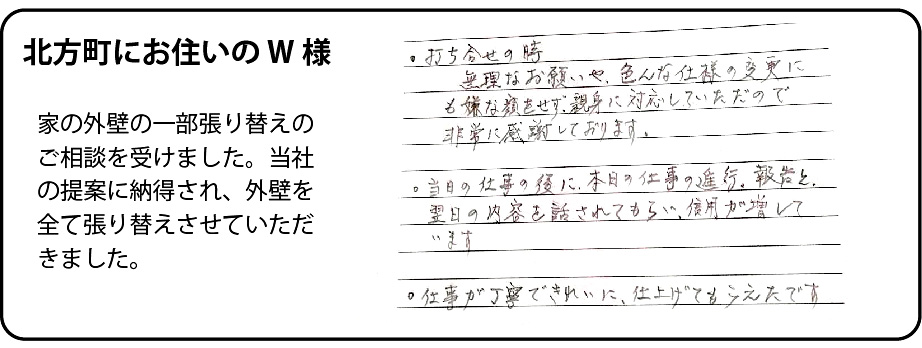 北方町にお住いの W 様
家の外壁の一部張り替えの
ご相談を受けました。当社
の提案に納得され、外壁を
全て張り替えさせていただ
きました。
。打ち合せの時
無理なお願いや、色んな仕様の変更に
も嫌な顔をせず、親身に対応していただので
非常に感謝しております。
。当日の仕事の後に、本日の仕事の進行。報告と、
翌日の内容を話されてもらい、信用が増して
います
。仕事が丁寧できれいに、仕上げてもらえたです